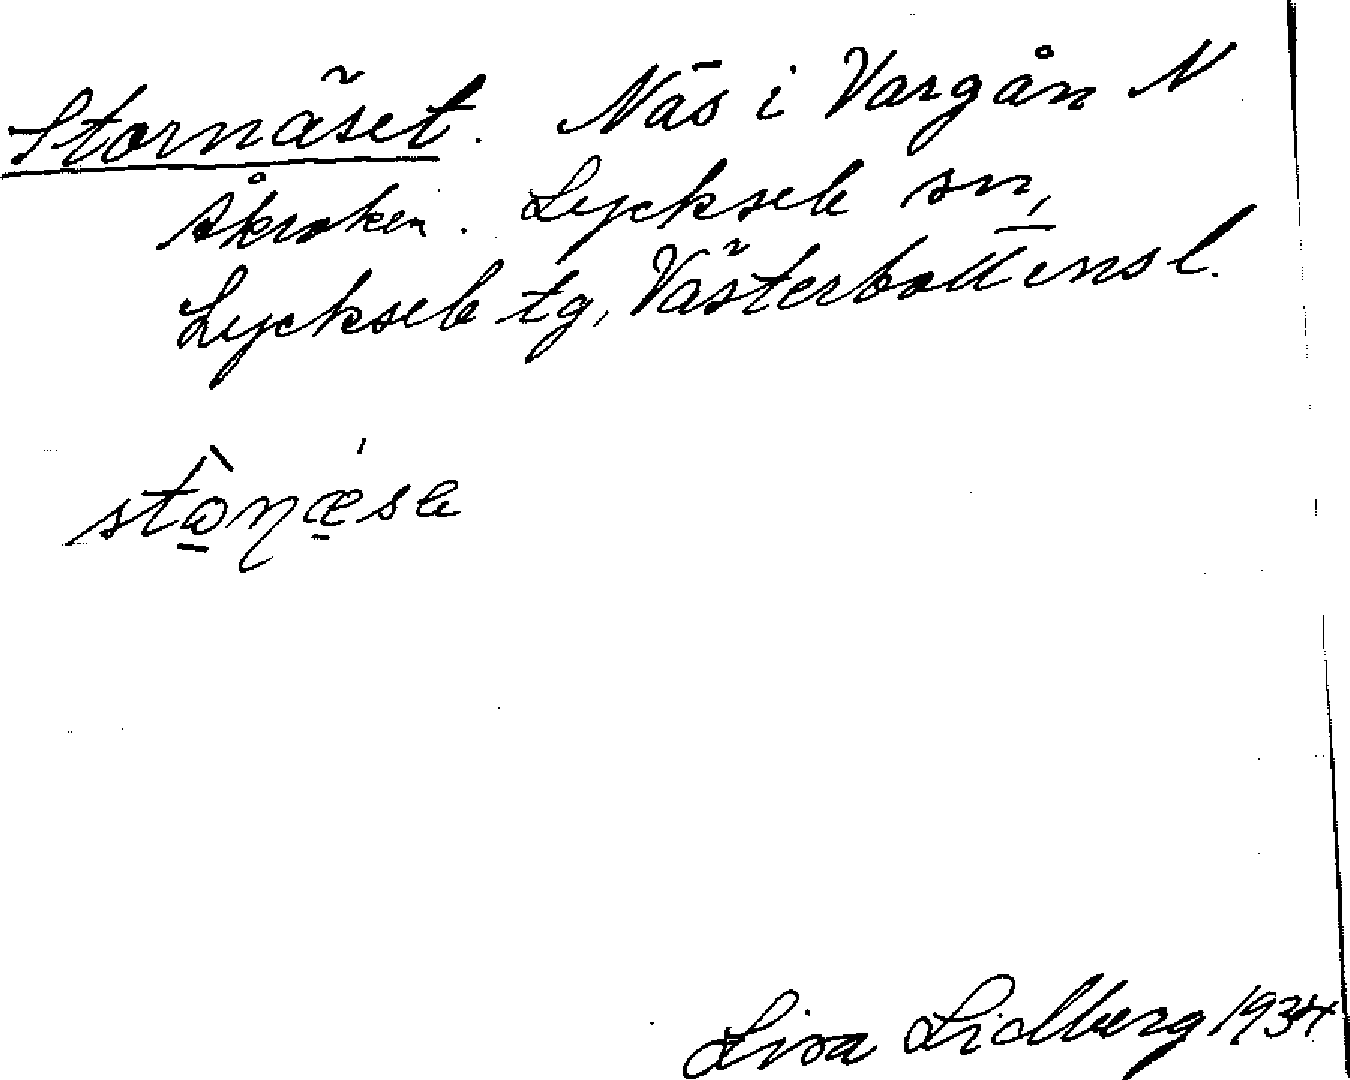 Stornäset. Näs i Vargån N
Åkroken. Lycksele sn,
Lycksele tg, Västerbottensl.
stò̱ɳǽ̱sə
Lisa Lidberg 1934